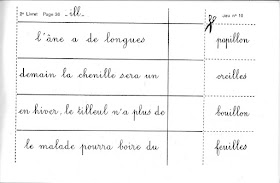 3e Livret Page 38 -ill- Jeu n° 10
l'âne a de longues papillon
demain la chenille sera un oreilles
en hiver, le tilleul n'a plus de bouillon
le malade pourra boire du feuilles